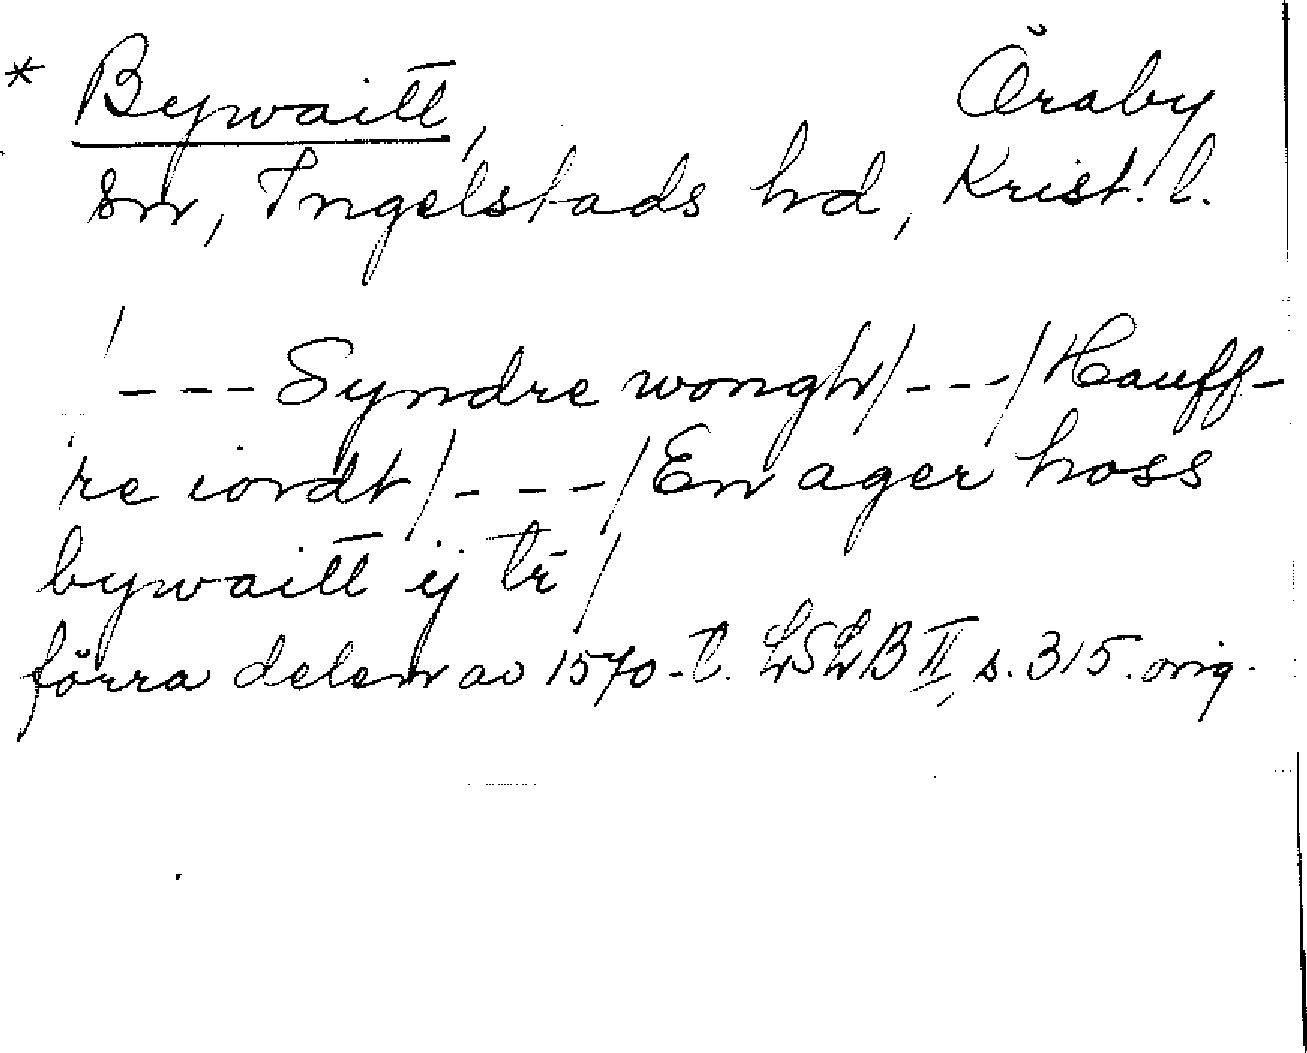 * Bywaitt, Öraby
sn, Ingelstads hd, Krist. l.
/--- Syndre wongh/---/Hauff-
re iordt/---/En ager hoss
bywaitt ij tr̄/
förra delen av 1570-t. LSLB II, s. 315. orig.